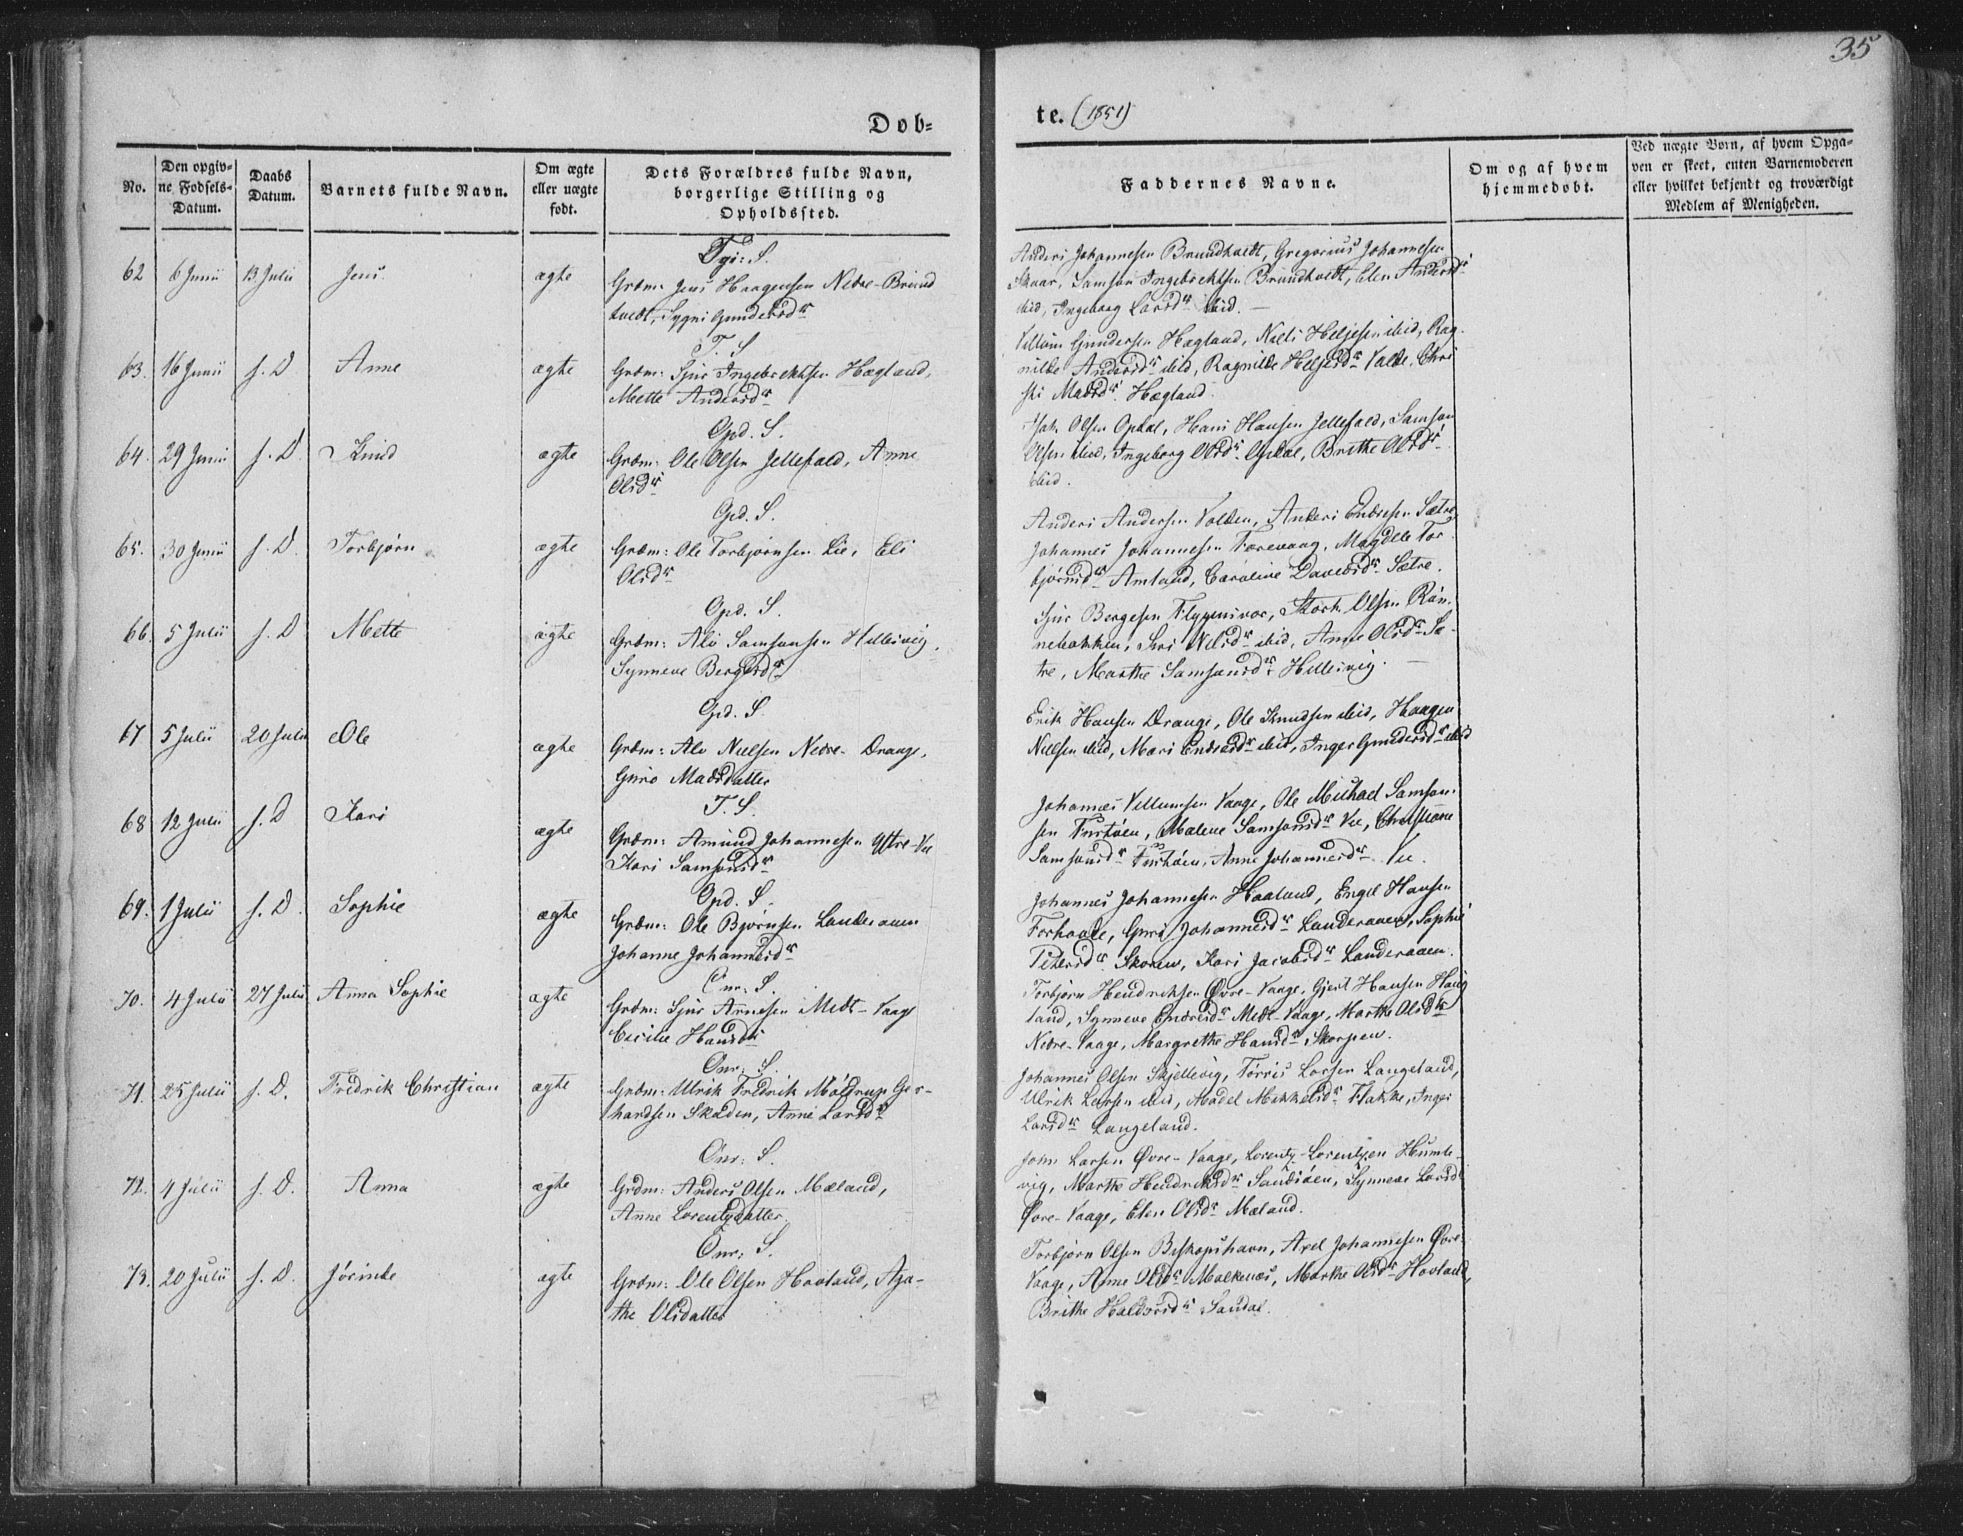 35
Døb=
te. (1851)
No.
Den opgiv=
ne Fødsels=
Datum.
Daabs
Datum.
Barnets fulde Navn.
Om ægte
eller uægte
født.
Dets Forældres fulde Navn,
borgerlige Stilling og
Opholdssted.
Faddernes Navne.
Om og af hvem
hjemmedøbt.
Ved uægte Børn, af hvem Opga=
ven er skeet, enten Barnemoderen
eller hvilket bekjendt og troværdigt
Medlem af Menigheden.
62 6 Junii 13 Julii Jens ægte
Grdm: Jens Haagensen Nedre-Brund
tvedt, Sygni Gundersdr
Anders Johannesen Brundtvedt, Gregorius Johannesen
Skaar, Samson Ingebrektsen Brundtvedt, Elen Andersdr
ibid, Ingeborg Larsdr ibid.
63. 16 Junii s. D. Anne ægte
T. S.
Grdm: Sjur Ingebrektsen Hægland,
Mette Andersdr
Villum Gundersen Hægland, Niels Heljesen ibid, Rag-
nilde Andersdr ibid, Ragnilde Heljesdr Valde, Chri
sti Madsdr Hægland.
64. 29 Junii s. D. Knud ægte
Opd. S.
Grdm: Ole Olsen Jellefald, Anne
Olsdr
Olsen Opdal, Hans Hansen Jellefald, Samson
Olsen ibid, Ingeborg Olsdr Opdal, Brithe Olsdr
ibid.
65. 30 Junii s. D. Torbjørn ægte
Opd. S.
Grdm: Ole Torbjørnsen Lie, Eli
Olsdr
Anders Andersen Valden, Anders Endresen Sætre,
Johannes Johannesen Færevaag, Magdele Tor-
bjørnsdr Amland, Caroline Davidsdr Sætre.
66. 5 Julii s. D. Mette ægte
Opd. S.
Grdm: Alv Samsonsen Hillesvig,
Synneve Bergesdr
Sjur Bergesen Flygansvær, Olsen Røn-
nebakken, Siri Nilsdr ibid, Anne Olsdr Sæ-
tre, Marthe Samsonsdr Hillesvig.
67 5 Julii 20 Julii Ole ægte
Opd. S.
Grdm: Alv Nielsen Nedre-Drange,
Guro Madsdatter
Erik Hansen Drange, Ole Knudsen ibid, Haagen
Nielsen ibid, Mari Endresdr ibid, Inger Gundersdr ibid
68 12 Julii s. D Kari ægte
T. S.
Grdm: Amund Johannesen Ystre-Vee
Kari Samsonsdr
Johannes Villumsen Vaage, Ole Michael Samson-
sen Tuftøen, Malene Samsonsdr Vee, Christiane
Samsonsdr Tuftøen, Anne Johannesdr Vee.
69. 1 Julii s. D. Sophie ægte
Opd. S.
Grdm: Ole Bjørnsen Landeraaen
Johanne Johannesdr
Johannes Johannesen Haaland, Engel Hansen
Forhaale, Guri Johannesdr Landeraaen, Sophie
Petersdr Skoren, Kari Jacobsdr Landeraaen.
70. 4 Julii 27 Julii Anna Sophie ægte
Onr: S.
Grdm: Sjur Arnesen Midt-Vaage
Cecilie Hansdr
Torbjørn Hendriksen Øvre-Vaage, Gjert Hansen Haug
land, Synneve Endresdr Midt-Vaage, Marthe Olsdr
Nedre-Vaage, Margrethe Hansdr Skorpen.
71. 25 Julii s. D. Fredrik Christian ægte
Onr: S.
Grdm: Ulrik Fredrik Moldrup Ger-
hardsen Skaden, Anne Larsdr
Johannes Olsen Skjellevig, Tørris Larsen Langeland,
Ulrik Larsen ibid, Madel Mikkelsdr Flakke, Inger
Larsdr Langeland.
72. 4 Julii s. D. Anna ægte
Onr: S.
Grdm: Anders Olsen Mæland,
Anne Lorentzdatter.
John Larsen Øvre-Vaage, Lorentz Lorentzen Humle-
vig, Marthe Hendriksdr Sandsøen, Synneve Larsdr
Øvre-Vaage, Elen Olsdr Mæland.
73. 20 Julii s. D. Jørinde ægte
Onr: S.
Grdm: Ole Olsen Hovland, Aga-
the Olsdatter
Torbjørn Olsen Biskopshavn, Axel Johannesen Øvre-
Vaage, Anne Olsdr Malkenæs, Marthe Olsdr Hovland,
Brithe Haldorsdr Sandal.